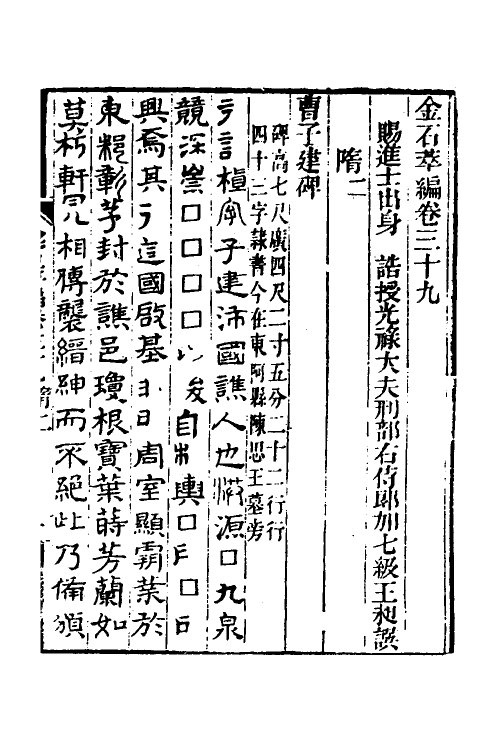 金石萃編卷三十九
賜進士出身 誥授光祿大夫刑部右侍郎加七級王昶譔
隋二
曹子建碑
碑高七尺廣四尺二寸五分二十二行行
四十三字隸書今在東阿縣陳思王墓旁
言植字子建沛國譙人也源□九泉
競深崇□□□□以自輿□□
興焉其建國啟基日周室顯霸業於
東封於譙邑瓊根寶葉蒔芳蘭如
莫朽軒冕相傳襲縉紳而不絕此乃備頒